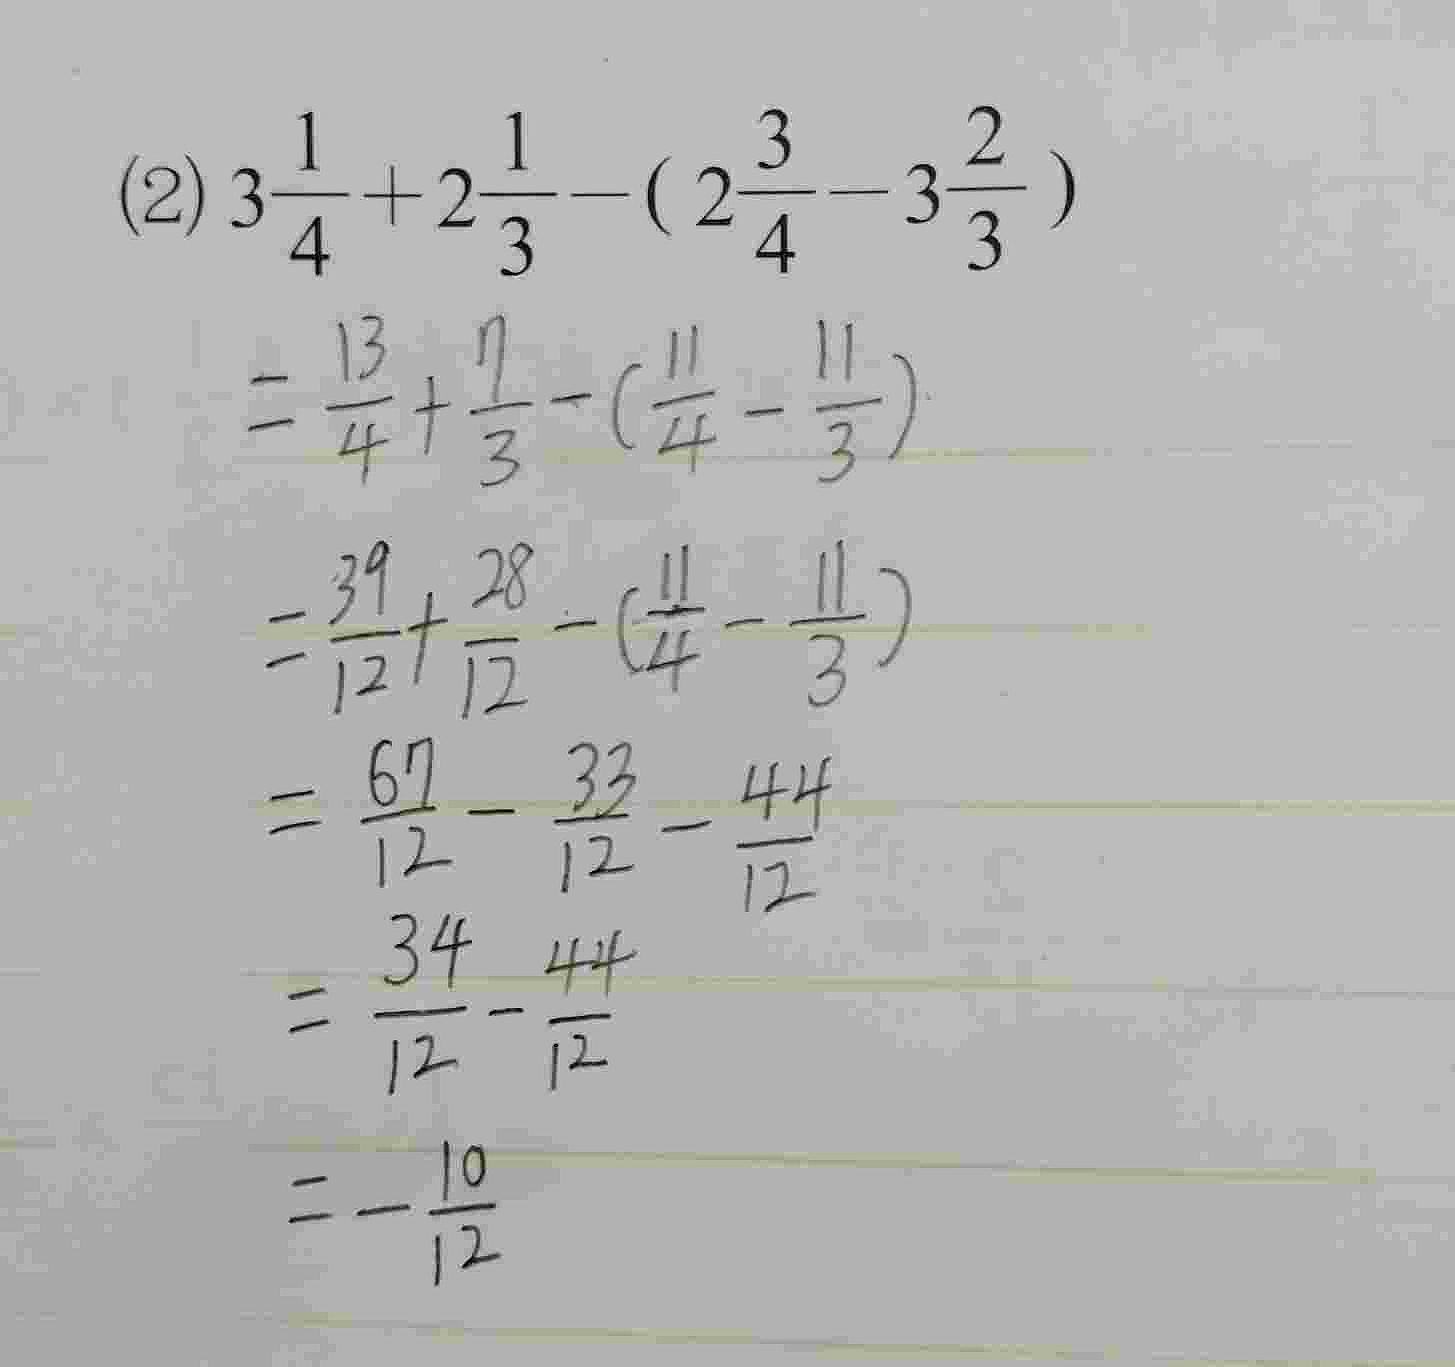 (2) 3 1/4 + 2 1/3 - ( 2 3/4 - 3 2/3 )
= 13/4 + 7/3 - ( 11/4 - 11/3 )
= 39/12 + 28/12 - ( 11/4 - 11/3 )
= 67/12 - 33/12 - 44/12
= 34/12 - 44/12
= - 10/12